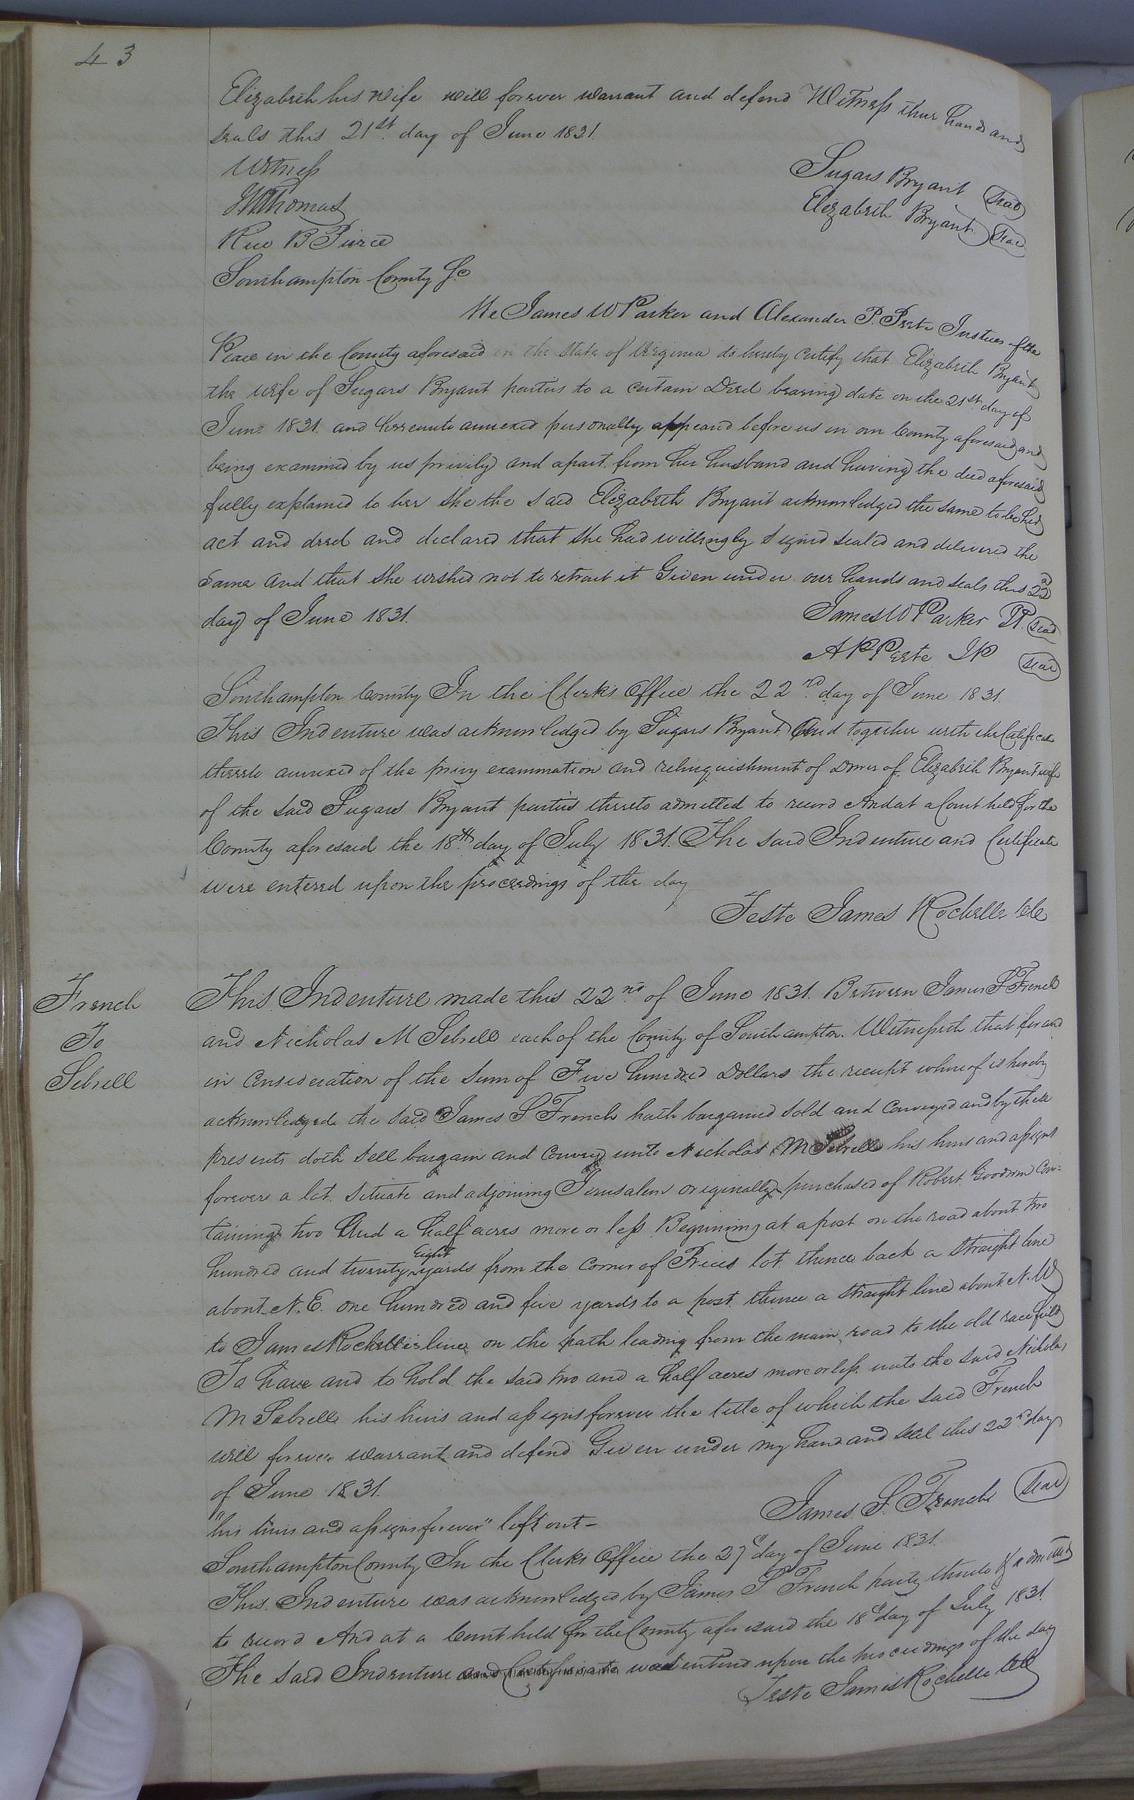 43
Elizabeth his wife will forever warrant and defend Witness their hands and
seals this 21st day of June 1831
Witness
Sugars Bryant Seal
WThomas
Elizabeth Bryant Seal
Rice B Pierce
Southampton County Sc
We James W Parker and Alexander P. Peete Justices of the
Peace in the County aforesaid in the State of Virginia do hereby certify that Elizabeth Bryant
the wife of Sugars Bryant parties to a certain Deed bearing date on the 21st day of
June 1831 and hereunto annexed personally appeared before us in our County aforesaid and
being examined by us privily and apart from her husband and having the deed aforesaid
fully explained to her she the said Elizabeth Bryant acknowledged the same to be her
act and deed and declared that she had willingly signed sealed and delivered the
same and that she wished not to retract it Given under our hands and seals this 22d
day of June 1831.
James W Parker JP. Seal
A P Peete JP Seal
Southampton County In the Clerks Office the 22nd day of June 1831.
This Indenture was acknowledged by Sugars Bryant and together with the Certificate
thereto annexed of the privy examination and relinquishment of Dower of Elizabeth Bryant wife
of the said Sugars Bryant parties thereto admitted to record And at a Court held for the
County aforesaid the 18th day of July 1831. The said Indenture and Certificate
were entered upon the proceedings of the day
Teste James Rochelle Clk
French
To
Sebrell
This Indenture made this 22nd of June 1831. Between James S French
and Nicholas M Sebrell each of the County of Southampton. Witnesseth that for and
in Consideration of the sum of Five hundred Dollars the receipt whereof is hereby
acknowledged the said James S French hath bargained sold and conveyed and by these
presents doth sell bargain and convey unto Nicholas M Sebrell his heirs and assigns
forever a lot situate and adjoining Jerusalem originally purchased of Robert Goodwin Con-
taining two and a half acres more or less Beginning at a post on the road about two
hundred and twenty Eight yards from the corner of Prices lot thence back a straight line
about N.E. one hundred and five yards to a post thence a straight line about N.W
to James Rochelle's line on the path leading from the main road to the old race field
To have and to hold the said two and a half acres more or less unto the said Nicholas
M Sebrell his heirs and assigns forever the title of which the said French
will forever warrant and defend Given under my hand and seal this 22nd day
of June 1831.
James S. French Seal
"his heirs and assigns forever" left out -
Southampton County In the Clerks Office the 27th day of June 1831.
This Indenture was acknowledged by James S French party thereto & admitted
to record And at a Court held for the County aforesaid the 18th day of July 1831
The said Indenture and Certificate was entered upon the proceedings of the day
Teste James Rochelle Clk